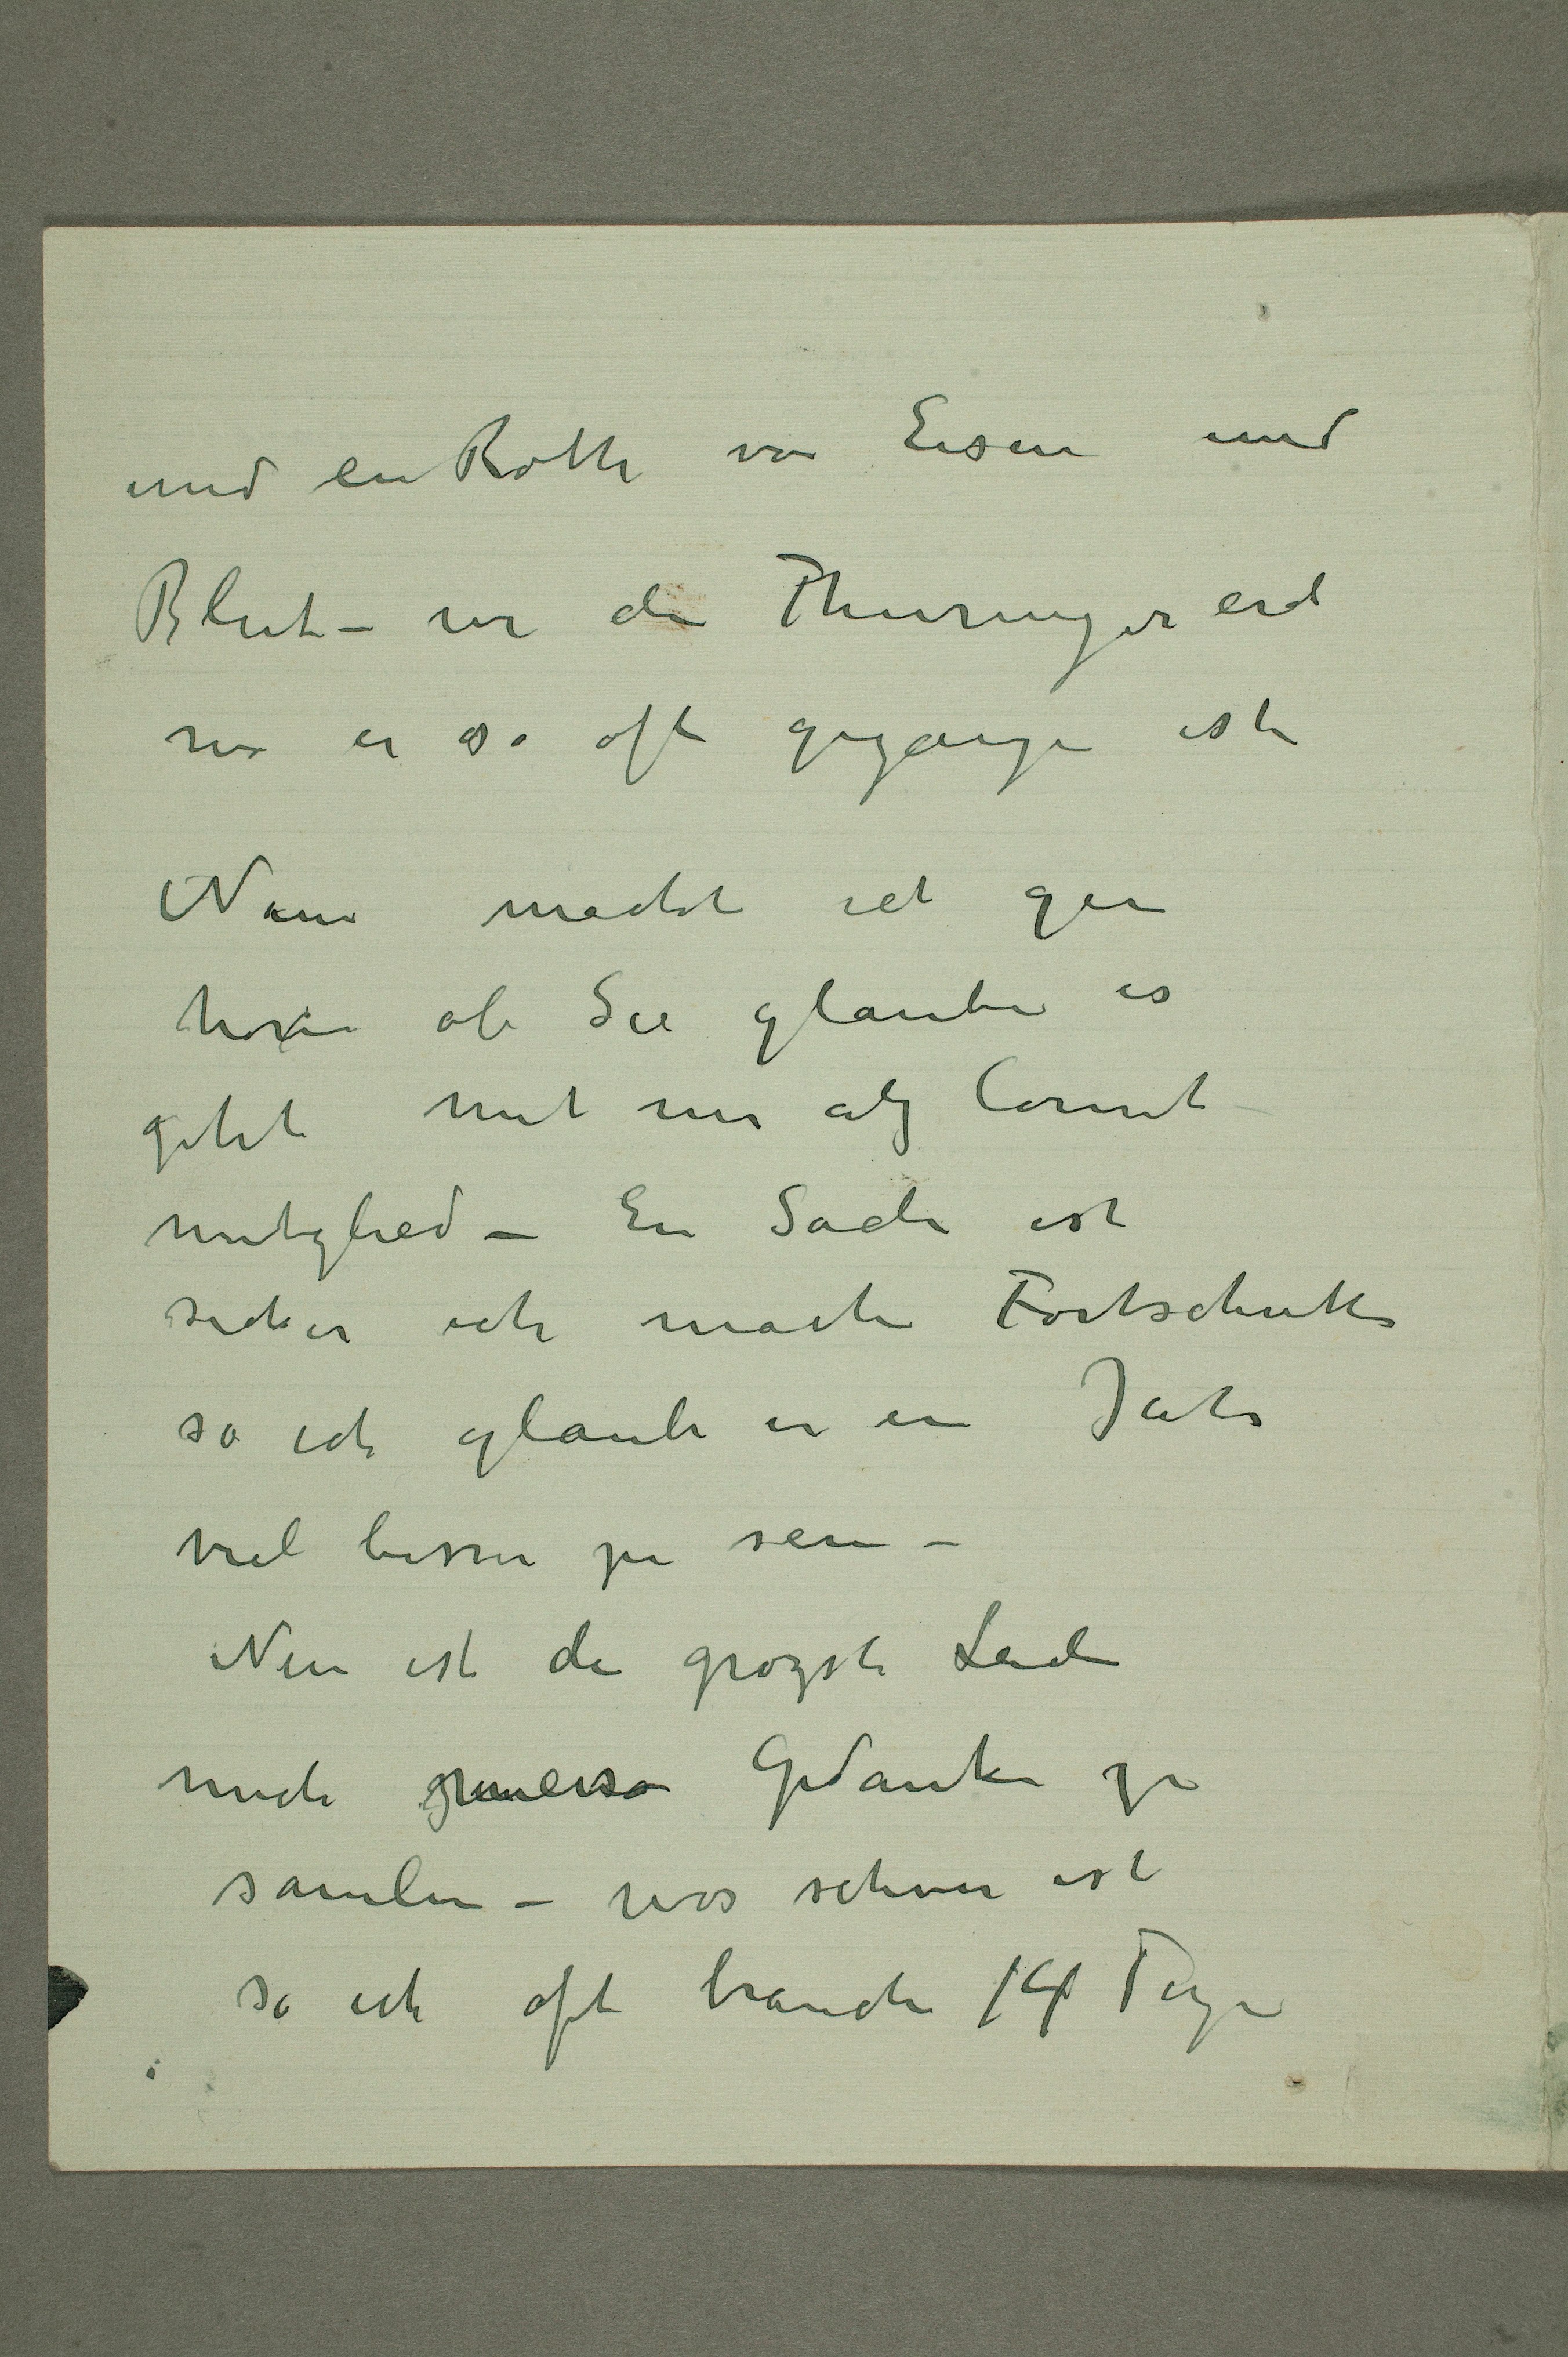 und ein Rothe von Eisen und
Blut – in die Thüringer erd
wo er so oft gegangen ist
Nun möcht ich gern
hören ob Sie glauben es
geht mit mir alz Comit-
mitglied – Ein Sache ist
sicker ich mache Fortschritte
so ich glaube in ein Jahr
viel besser zu sein –
Nun ist die grozste Leiden
mich Gedanken zu
samlen – was schwer ist
so ich oft brauche 14 Tage